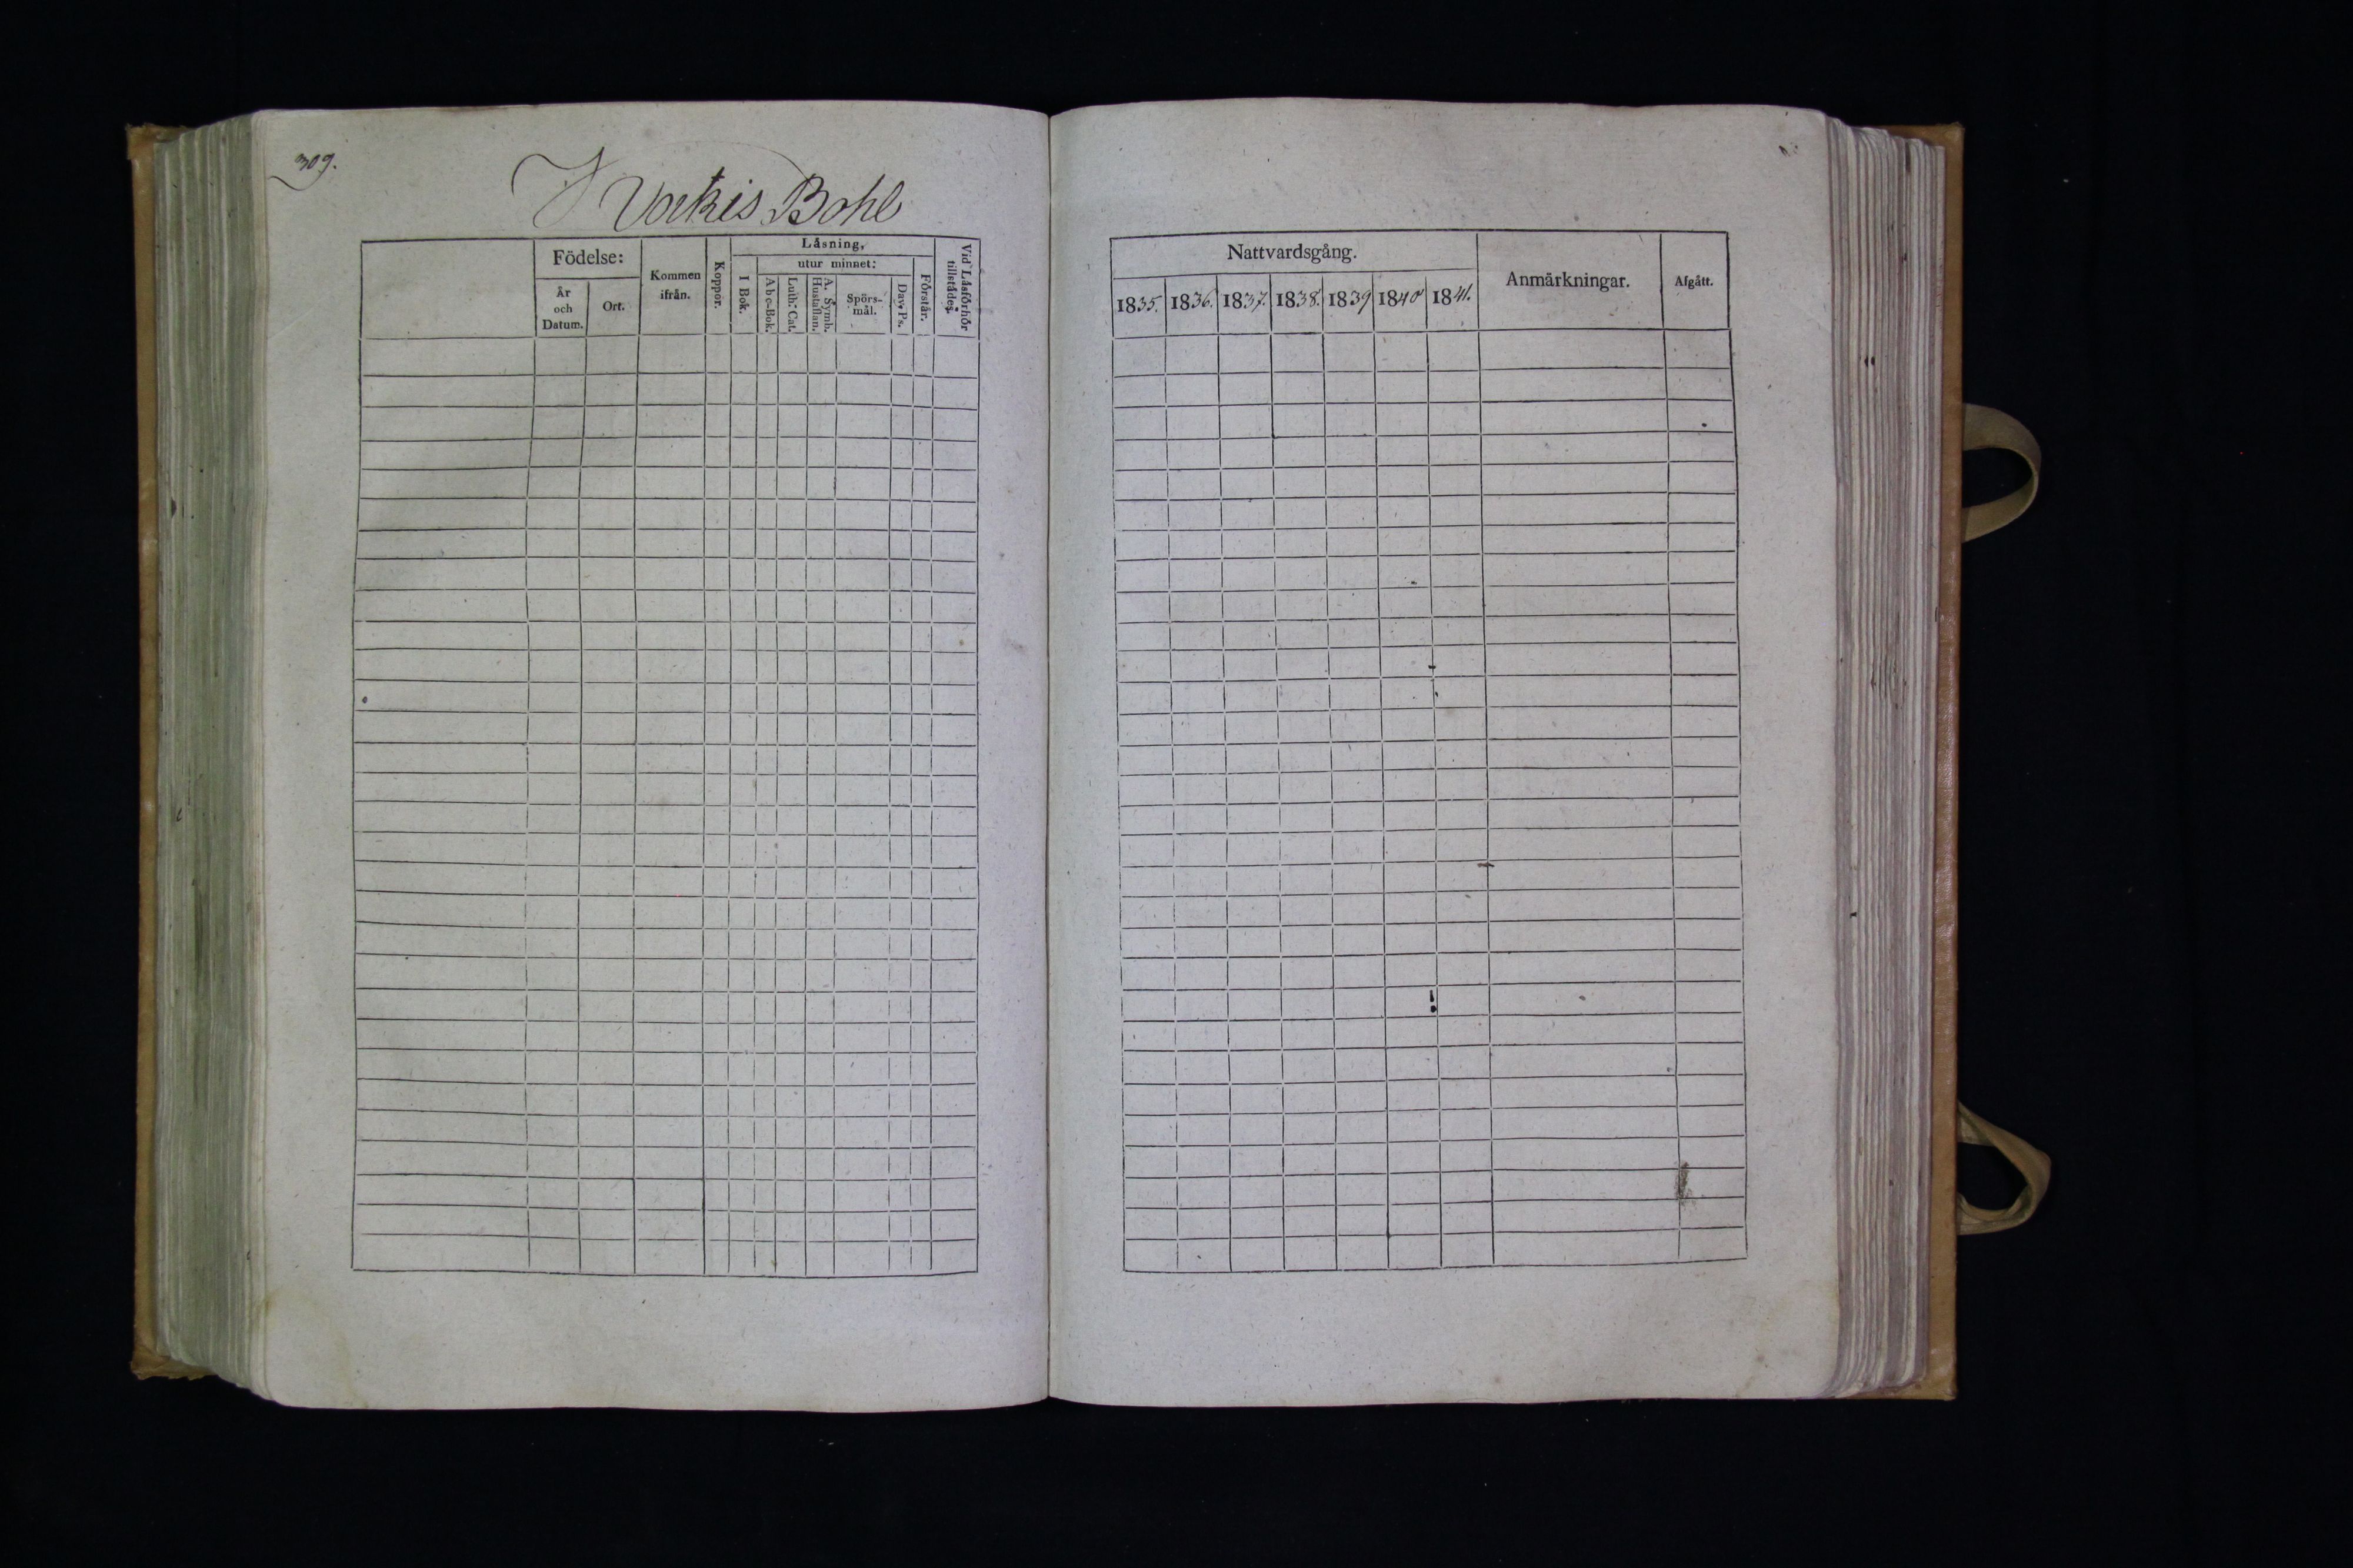 309.
I Voekis Bohl
Födelse:
År och Datum.
Ort.
Kommen ifrån.
Koppor.
Läsning,
I Bok.
utur minnet:
A b c-Bok.
Luth: Cat.
A. Symb. Hustaflan.
Spörs-mål.
Dav. Ps.
Förstår.
Vid Läsförhör tillstädes.
Nattvardsgång.
1835. 1836. 1837. 1838. 1839 1840 1841.
Anmärkningar.
Afgått.